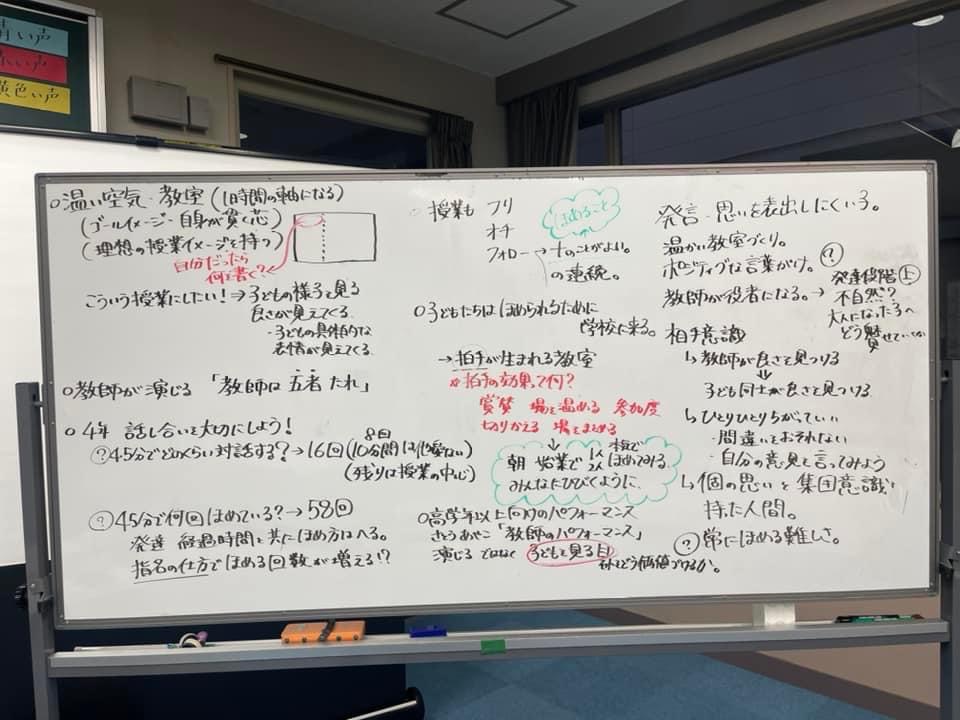 い声
い声
黄色い声
○温い空気・教室(1時間の軸になる)
(ゴールイメージ・自身が貫く芯)
(理想の授業イメージを持つ)
自分だったら
何を書く?
こういう授業にしたい!⇒子どもの様子を見る
良さが見えてくる
・子どもの具体的な
表情が見えてくる
○教師が演じる 「教師は五者たれ」
○4年 話し合いを大切にしよう!
?45分でどのくらい対話する?→16回(10分間は
8回
(残りは授業の中心)
?45分で何回ほめている?→58回
発達 経過時間と共にほめ方はへる。
指名の仕方でほめる回数が増える!?
授業も フリ
オチ
フォロー→
の連続。
ほめること
○子どもたちはほめられるために
学校に来る。
→拍手が生まれる教室
☆拍手の効果って何?
賞賛 場を温める 参加度
切りかえる 場をまとめる
↓
朝 始業で 1人 2人 本気で ほめてみる
みんなにひびくように、
○高学年以上向けのパフォーマンス
さとうあやこ「教師のパフォーマンス」
演じるではなく 子どもを見る目
それをどう価値づけるか。
発言・思いを表出しにくい子。
温かい教室づくり。
ポジティブな言葉がけ。
教師が役者になる。→
?
発達段階 上
不自然?
大人になった子へ
どう魅せていくか
相手意識
↳教師が良さを見つける
⇓
子ども同士が良さを見つける
↳ひとりひとりちがっていい
・間違いをおそれない
・自分の意見を言ってみよう
↳個の思いと集団意識を
持った人間。
?常にほめる難しさ。